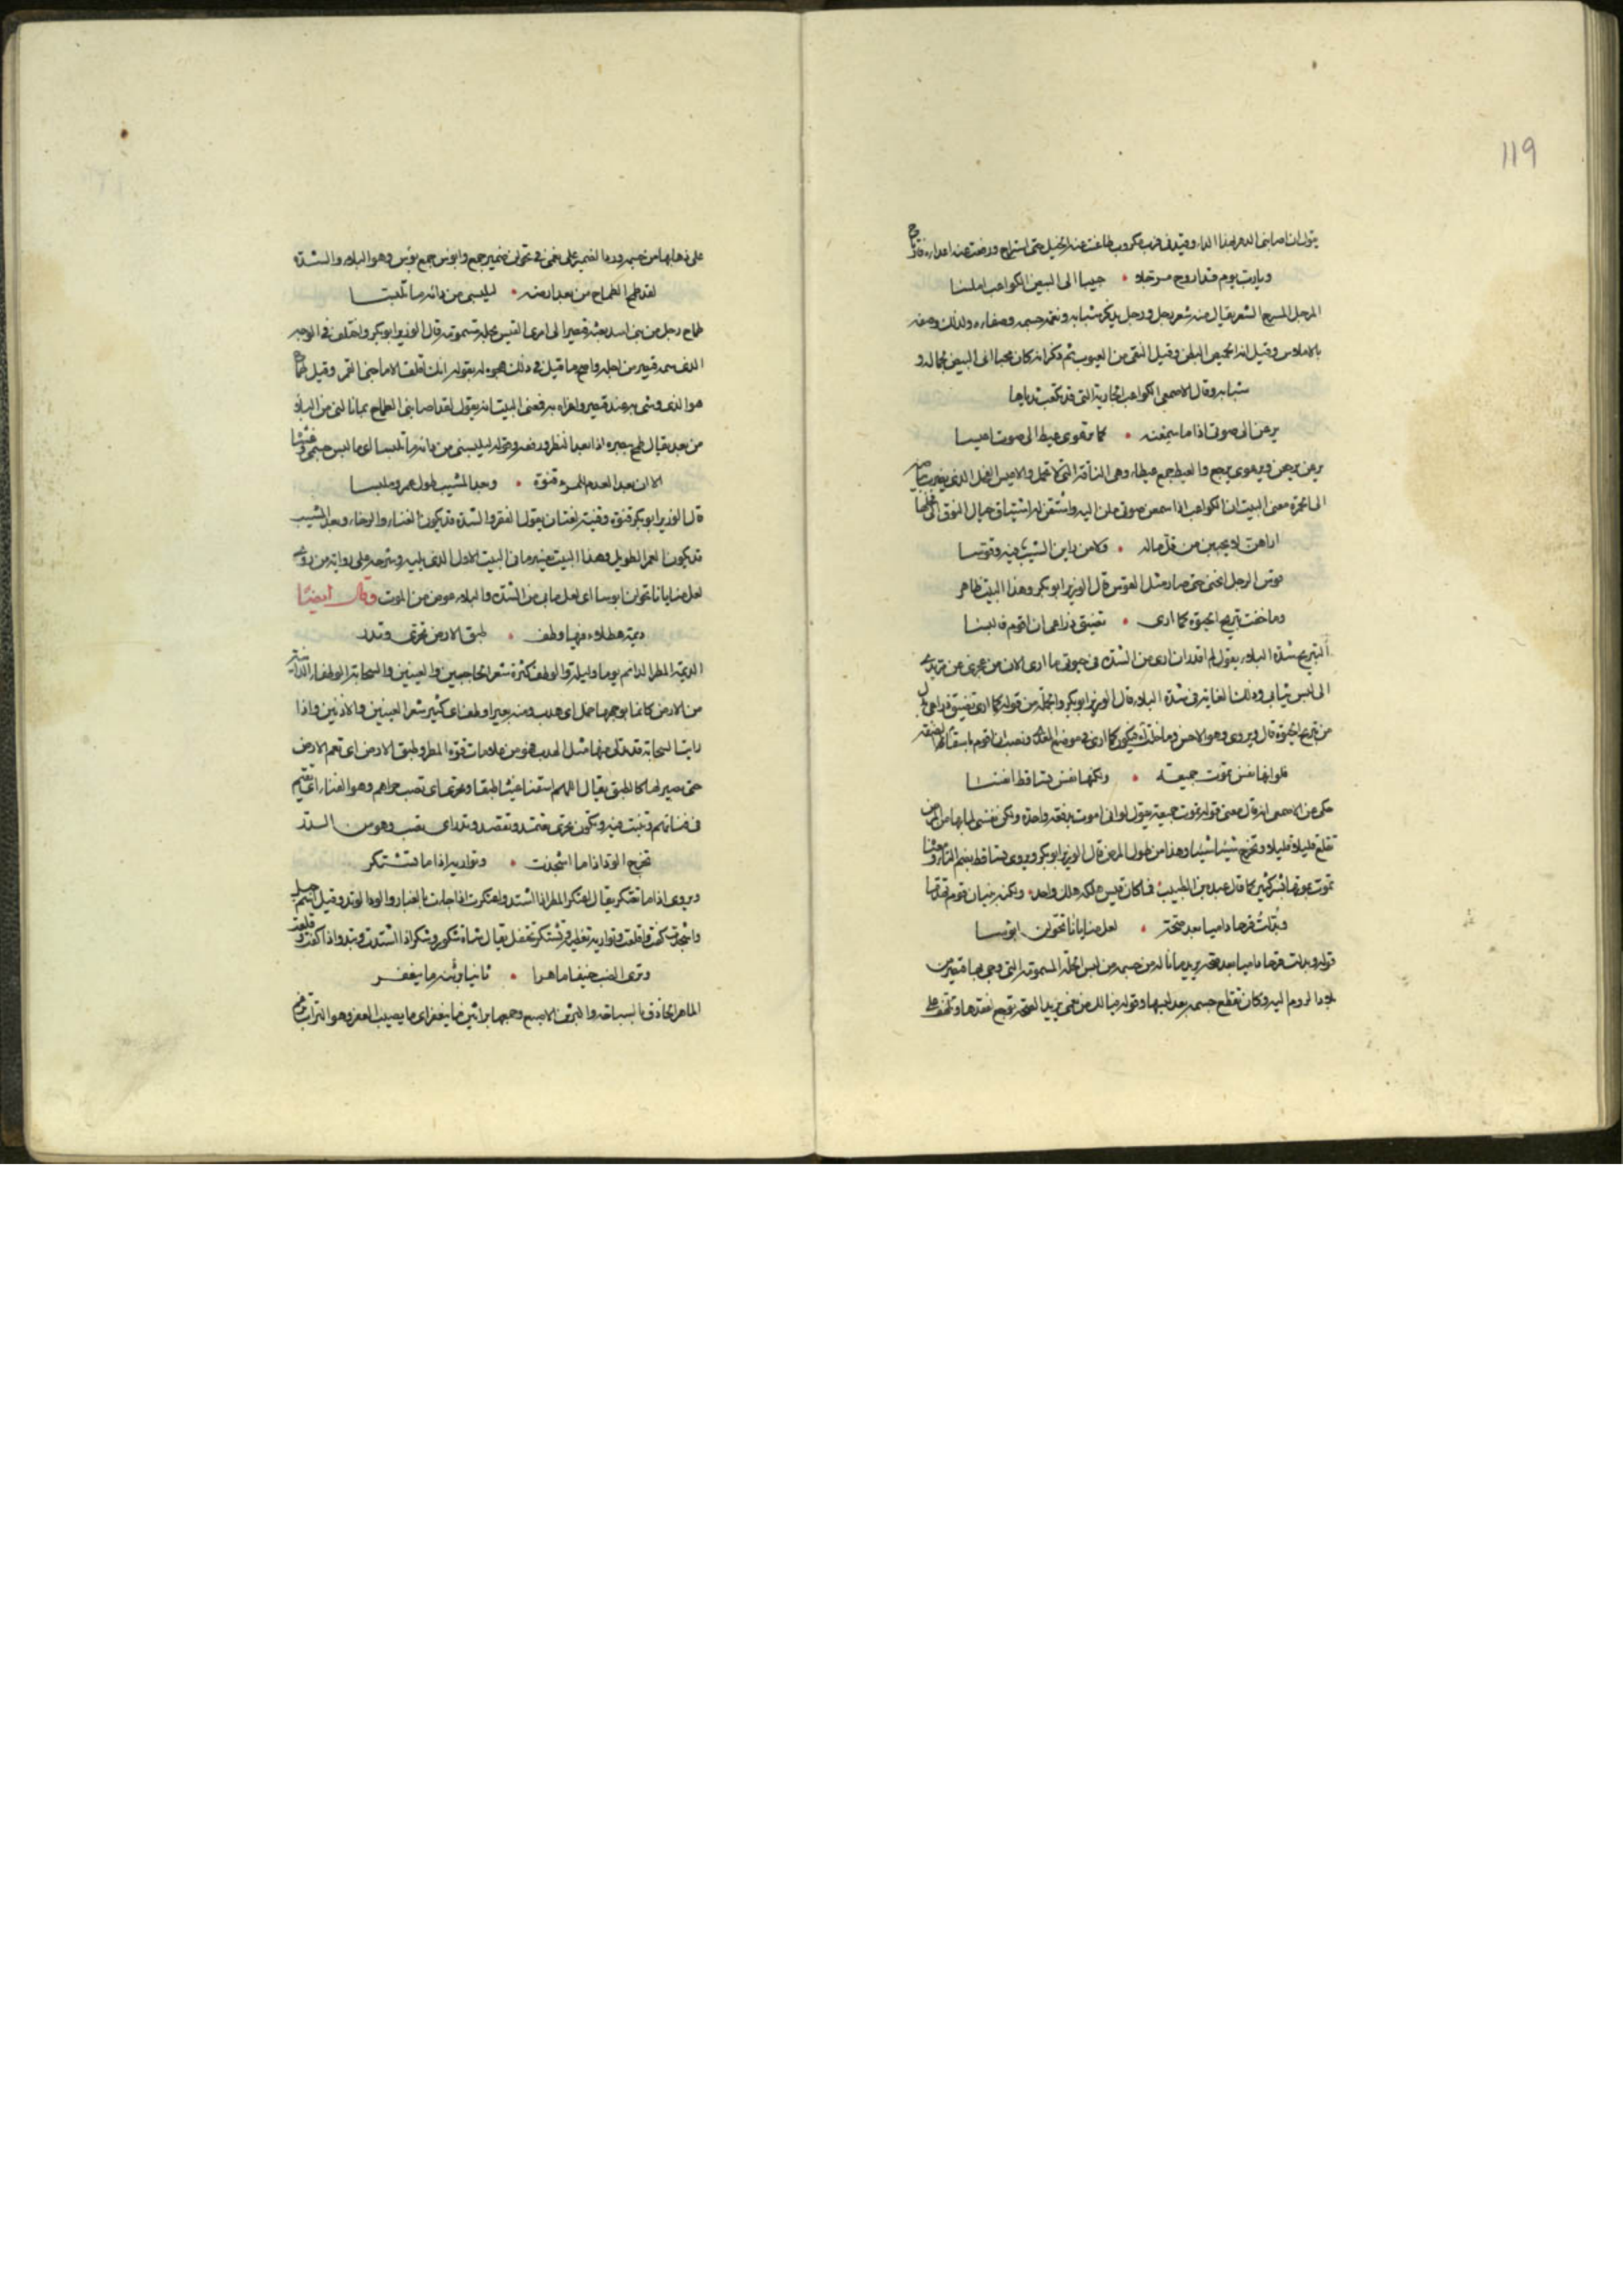 119
يقول ان اصابنى الدهر بهذا الداء وقيد فى فرب مكروب طاعنت عنه الخيل حتى استراح ودفعت عنه اعداءه
ويا رب يوم قد اروح مرجلا • حبيبا الى البيض الكواعب املسا
المرجل المسرح الشعر يقال منه شعر رجل ورجل يذكر شبابه ونعمة جسمه وصفاءه ولذلك وصفه
بالاملاس وقيل انه الخميص البطن وقيل النقى من العيوب ثم ذكر انه كان محببا الى البيض لجماله و
شبابه وقال الاصمعى الكواعب الجارية التى قد تكعب ثدياها
يرعن الى صوتى اذا ما سمعنه • كما ترعوى عيط الى صوت اعيسا
يرعن يرجعن ويرعوى يرجع والعيط جمع عيطاء وهى الناقة التى لا تحمل والاعيس الفحل الذى يضرب بياضه
الى الحمرة معنى البيت ان الكواعب اذا سمعن صوتى ملن اليه واشتقن له اشتياق حيال النوق الى فحلها
اراهن لا يحببن من قل ماله • ولا من راين الشيب فيه وقوسا
قوس الرجل انحنى حتى صار مثل القوس قال الوزير ابو بكر وهذا البيت ظاهر
وما خفت تبريح الحيوة كما ارى • تضيق ذراعى ان اقوم فالبسا
التبريح شدة البلاء يقول لم اقدر ان ارى من الشدة فى حيوتى ما ارى الان من عجزى عن مد يدى
الى لبس ثيابى وذلك الغاية فى شدة البلاء قال الوزير ابو بكر والجملة من قوله كما ارى تضيق ذراعى
من تبريح الحيوة قال ويروى وهو الاحسن وما خلت فيكون كما ارى فى موضع المفعول ونصب ان اقوم باسقاط
فلو انها نفس تموت جميعة • ولكنها نفس تساقط انفسا
حكى عن الاصمعى انه قال معنى قوله تموت جميعة يقول لو انى اموت بدفعة واحدة ولكن نفسى لما بها من المرض
تقلع قليلا قليلا وتخرج شيئا شيئا وهذا من طول المرض قال الوزير ابو بكر ويروى تساقط بضم التاء
تموت بموتها بشر كثير كما قال عبدة بن الطبيب فما كان قيس هلكه هلك واحد • ولكنه بنيان قوم تهدما
وبدلت قرحا داميا بعد صحة • لعل منايانا تحولن ابوسا
قوله وبدلت قرحا داميا بعد صحة يريد ما ناله من جسمه من لبس الحلة المسمومة التى وجه بها قيصر من
بلاد الروم اليه وكان تقطع جسمه بعد لبسها وقوله فيا لك من نعمى يريد الصحة توجع لفقدها وتلهف على
على ذهابها من جسمه ورد الضمير على نعمى فى تحولن ضمير جمع وابوس جمع بوس وهو البلاء والشدة
لقد طمح الطماح من بعد ارضه • ليلبسنى من دائه ما تلبسا
طماح رجل من بنى اسد بعثه قيصر الى امرئ القيس بحلة مسمومة قال الوزير ابو بكر واختلف فى الوجه
الذى سمه قيصر من اجله واصح ما قيل فى ذلك هجوه له بقوله انك اقلف الا ما جنى القمر وقيل
هو الذى وشى به عند قيصر واغراه به فمعنى البيت انه يقول لقد اصابنى الطماح بما نالنى من البلاء
من بعد يقال طمح ببصره اذا ابعد النظر ورفعه وقوله ليلبسنى من دائه ما تلبسا اى ما لبس جسمى
الا ان بعد العدم للمرء قنوة • وبعد المشيب طول عمر وملبسا
قال الوزير ابو بكر قنوة وقنية لغتان يقول الفقر والشدة قد يكون الغناء والرخاء وبعد المشيب
قد يكون العمر الطويل وهذا البيت يفسره ما فى البيت الاول الذى يليه وشرحه على رواية من روى
لعل منايانا تحولن ابوسا اى لعل ما بى من الشدة والبلاء عوض من الموت وقال ايضا
ديمة هطلاء فيها وطف • طبق الارض تحرى وتدر
الديمة المطر الدائم يوما وليلة والوطف كثرة شعر الحاجبين والعينين والسحابة الوطفاء الدانية
من الارض كانما بوجهها حمل اى هدب ومنه بعير اوطف اى كثير شعر العينين والاذنين واذا
رايت السحابة قد تدلى منها مثل الهدب فهو من علامات قوة المطر وطبق الارض اى تعم الارض
حتى تصير لها كالطبق يقال اللهم اسقنا غيثا طبقا وتحرى اى تصب حراهم وهو الفناء اى تقيم
فى فنائهم وتثبت فيه ويكون تحرى تعتمد وتقصد وتدر اى تصب وهو من الدر
تخرج الود اذا ما اشجذت • وتواريه اذا ما تشتكر
ويروى اذا ما تعتكر يقال اعتكر المطر اذا اشتد واعتكرت اذا جاءت بالغبار والود الوتد وقيل اسم جبل
واشجذت كفت واقلعت وتواريه تغطيه وتشتكر تحتفل يقال شاة شكور وشكر اذا اشتدت
وترى الضب خفيفا ماهرا • ثانيا برثنه ما ينعفر
الماهر الحاذق بالسباحة والبرثن الاصبع وجمعها براثن وما ينعفر اى ما يصيب العفر وهو التراب